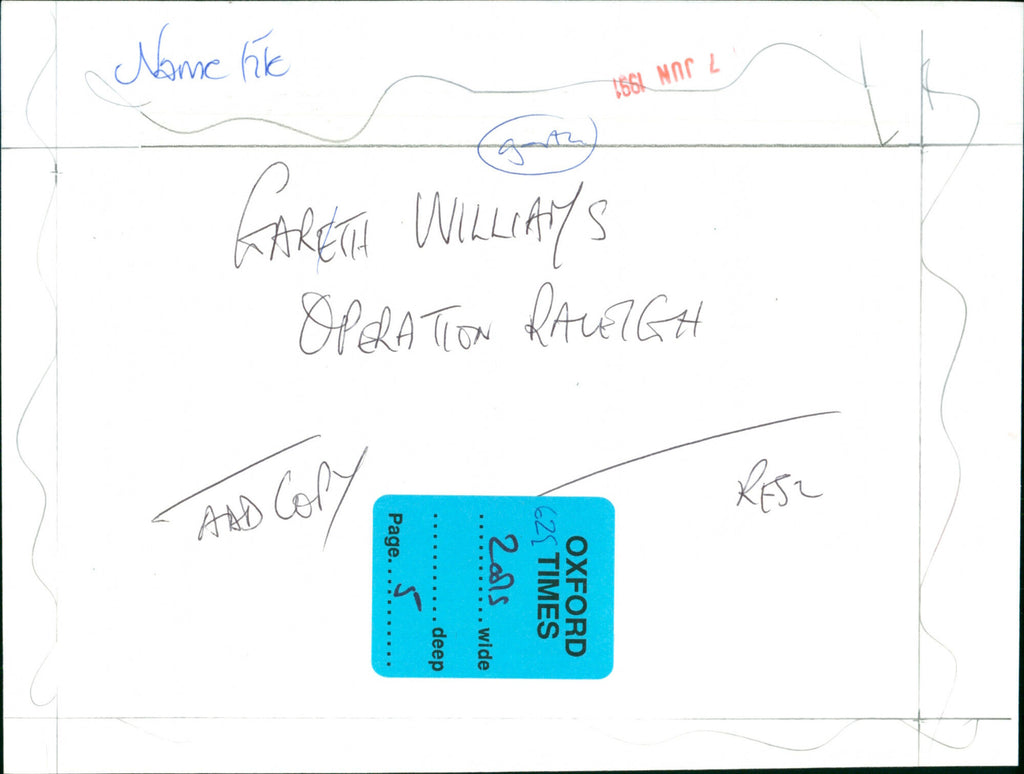 Name file
7 JUN 1991
GARETH WILLIAMS
OPERATION RALEIGH
AAD COPY
OXFORD
TIMES
625
..........wide
..........deep
Page...5......